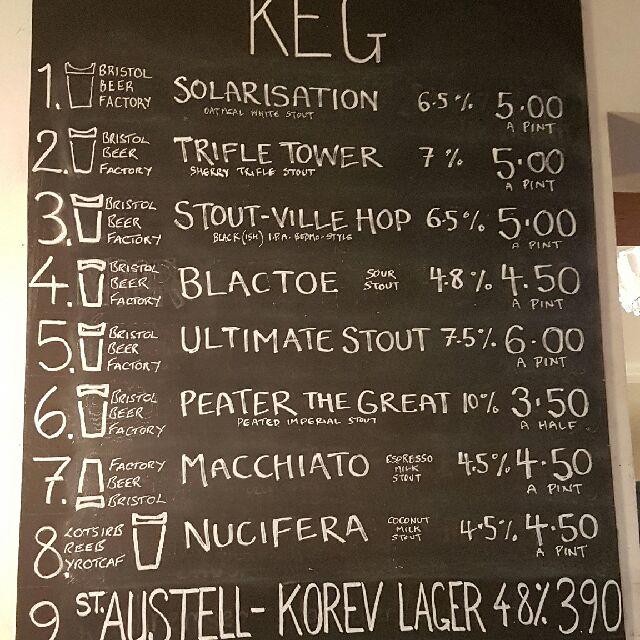 KEG
1. BRISTOL BEER FACTORY SOLARISATION 6.5% 5.00
OATMEAL WHITE STOUT A PINT
2. BRISTOL BEER FACTORY TRIFLE TOWER 7% 5.00
SHERRY TRIFLE STOUT A PINT
3. BRISTOL BEER FACTORY STOUT-VILLE HOP 6.5% 5.00
BLACK(ISH) I.P.A. BEDMO-STYLE A PINT
4. BRISTOL BEER FACTORY BLACTOE SOUR STOUT 4.8% 4.50
A PINT
5. BRISTOL BEER FACTORY ULTIMATE STOUT 7.5% 6.00
A PINT
6. BRISTOL BEER FACTORY PEATER THE GREAT 10% 3.50
PEATED IMPERIAL STOUT A HALF
7. FACTORY BEER BRISTOL MACCHIATO ESPRESSO MILK STOUT 4.5% 4.50
A PINT
8. LOTSIRB REEB YROTCAF NUCIFERA COCONUT MILK STOUT 4.5% 4.50
A PINT
9 ST. AUSTELL - KOREV LAGER 4.8% 3.90